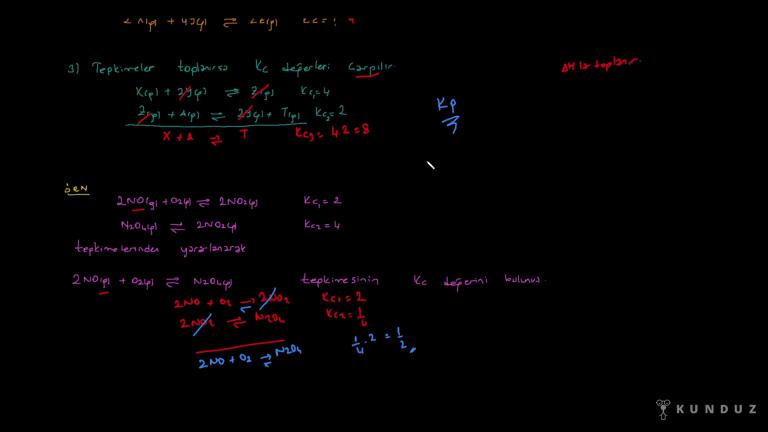 3) Tepkimeler toplanırsa Kc değerleri çarpılır.
ΔH'lar toplanır.
X(g) + 2Y(g) ⇌ Z(g) Kc₁ = 4
Z(g) + A(g) ⇌ 2Y(g) + T(g) Kc₂ = 2
X + A ⇌ T Kc₃ = 4.2 = 8
Kp
örn
2NO(g) + O₂(g) ⇌ 2NO₂(g) Kc₁ = 2
N₂O₄(g) ⇌ 2NO₂(g) Kc₂ = 4
tepkimelerinden yararlanarak
2NO(g) + O₂(g) ⇌ N₂O₄(g) tepkimesinin Kc değerini bulunuz.
2NO + O₂ ⇌ 2NO₂ Kc₁ = 2
2NO₂ ⇌ N₂O₄ Kc₂ = 1/4
2NO + O₂ ⇌ N₂O₄ 1/4 . 2 = 1/2
KUNDUZ